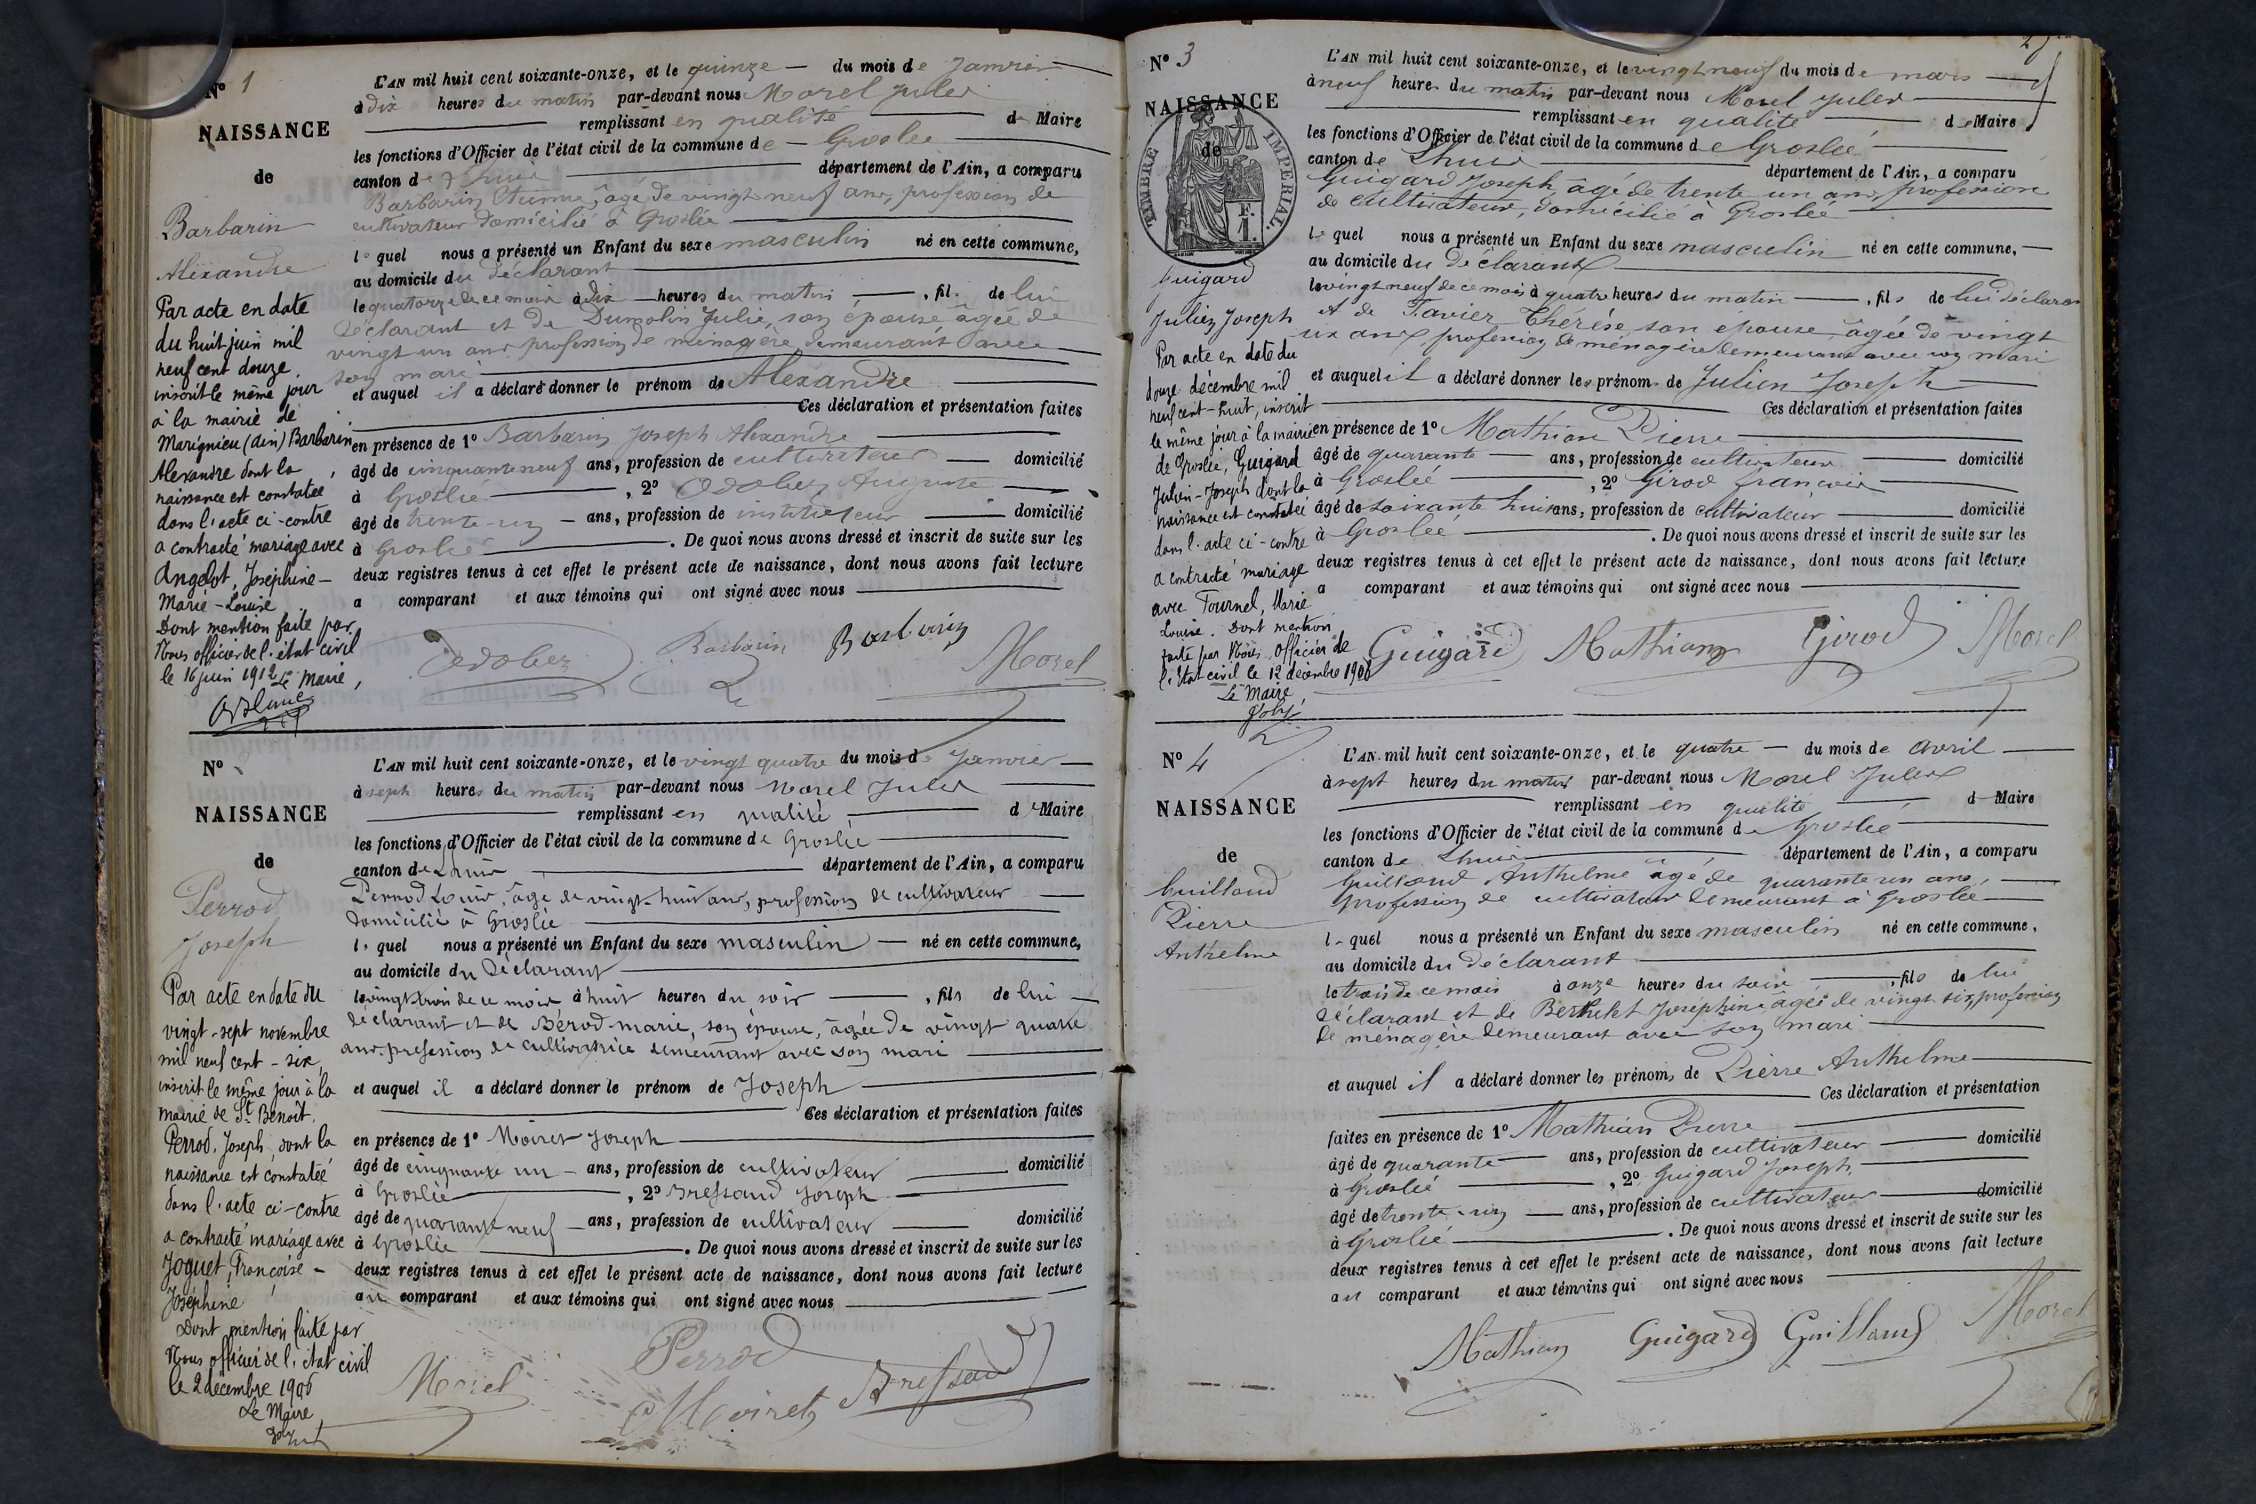 N° 1
NAISSANCE
de
Barbarin
Alexandre
Par acte en date
du huit juin mil
neuf cent douze,
inscrit le même jour
à la mairie de
Marignieu (Ain) Barbarin
Alexandre dont la
naissance est constatée
dans l'acte ci-contre
a contracté mariage avec
Angelot, Joséphine-
Marie-Louise
Dont mention faite par
Nous officier de l'état civil
le 16 juin 1912 Le Maire,
L'AN mil huit cent soixante-onze, et le quinze du mois de Janvier
à dix heures du matin par-devant nous Morel Jules
remplissant en qualité de Maire
les fonctions d'Officier de l'état civil de la commune de Groslée
canton de Lhuis département de l'Ain, a comparu
Barbarin Etienne, âgé de vingt neuf ans, profession de
cultivateur domicilié à Groslée
lequel nous a présenté un Enfant du sexe masculin né en cette commune,
au domicile du déclarant
le quatorze de ce mois à dix heures du matin, fils de lui
déclarant et de Dumolin Julie, son épouse âgée de
vingt un ans profession de ménagère demeurant avec
son mari
et auquel il a déclaré donner le prénom de Alexandre
Ces déclaration et présentation faites
en présence de 1° Barbarin Joseph Alexandre
âgé de cinquante neuf ans, profession de cultivateur domicilié
à Groslée, 2° Odobez Auguste
âgé de trente-un ans, profession de instituteur domicilié
à Groslée. De quoi nous avons dressé et inscrit de suite sur les
deux registres tenus à cet effet le présent acte de naissance, dont nous avons fait lecture
a comparant et aux témoins qui ont signé avec nous
Odobez Barbarin Barbarin Morel
N°
NAISSANCE
de
Perrod
Joseph
Par acte en date du
vingt-sept novembre
mil neuf cent-six,
inscrit le même jour à la
mairie de St Benoît,
Perrod, Joseph dont la
naissance est constatée
dans l'acte ci-contre
a contracté mariage avec
Joguet, Françoise-
Joséphine
Dont mention faite par
Nous officier de l'état civil
le 2 décembre 1906
Le Maire,
L'AN mil huit cent soixante-onze, et le vingt quatre du mois de Janvier
à sept heures du matin par-devant nous Morel Jules
remplissant en qualité de Maire
les fonctions d'Officier de l'état civil de la commune de Groslée
canton de Lhuis département de l'Ain, a comparu
Perrod Louis, âgé de vingt-huit ans, profession de cultivateur
domicilié à Groslée
lequel nous a présenté un Enfant du sexe masculin né en cette commune,
au domicile du déclarant
le vingt trois de ce mois à huit heures du soir, fils de lui
déclarant et de Bérod marie, son épouse, âgée de vingt quatre
ans profession de cultivatrice demeurant avec son mari
et auquel il a déclaré donner le prénom de Joseph
Ces déclaration et présentation faites
en présence de 1° Moiret Joseph
âgé de cinquante un ans, profession de cultivateur domicilié
à Groslée, 2° Bressand Joseph
âgé de quarante neuf ans, profession de cultivateur domicilié
à Groslée. De quoi nous avons dressé et inscrit de suite sur les
deux registres tenus à cet effet le présent acte de naissance, dont nous avons fait lecture
au comparant et aux témoins qui ont signé avec nous
Morel Perrod Moiret Bressand
N° 3
NAISSANCE
de
TIMBRE IMPERIAL.
F.
1.
Guigard
Julien Joseph
Par acte en date du
douze décembre mil
neuf cent-huit, inscrit
le même jour à la mairie
de Groslée, Guigard
Julien-Joseph dont la
naissance est constatée
dans l'acte ci-contre
a contracté mariage
avec Tournel, Marie
Louise. Dont mention
faite par Nous, Officier de
l'Etat civil le 12 décembre 1908
Le Maire
L'AN mil huit cent soixante-onze, et le vingt neuf du mois de mars
à neuf heures du matin par-devant nous Morel Jules
remplissant en qualité de Maire
les fonctions d'Officier de l'état civil de la commune de Groslée
canton de Lhuis département de l'Ain, a comparu
Guigard Joseph, âgé de trente un ans, profession
de cultivateur, domicilié à Groslée
lequel nous a présenté un Enfant du sexe masculin né en cette commune,
au domicile du déclarant
le vingt neuf de ce mois à quatre heures du matin, fils de lui déclarant
et de Tavier Thérèse son épouse âgée de vingt
six ans, profession de ménagère demeurant avec son mari
et auquel il a déclaré donner les prénoms de Julien Joseph
Ces déclaration et présentation faites
en présence de 1° Mathian Pierre
âgé de quarante ans, profession de cultivateur domicilié
à Groslée, 2° Girod françois
âgé de soixante huit ans, profession de cultivateur domicilié
à Groslée. De quoi nous avons dressé et inscrit de suite sur les
deux registres tenus à cet effet le présent acte de naissance, dont nous avons fait lecture
a comparant et aux témoins qui ont signé avec nous
Guigard Mathian Girod Morel
N° 4
NAISSANCE
de
Guilland
Pierre
Anthelme
L'AN mil huit cent soixante-onze, et le quatre du mois de avril
à sept heures du matin par-devant nous Morel Jules
remplissant en qualité de Maire
les fonctions d'Officier de l'état civil de la commune de Groslée
canton de Lhuis département de l'Ain, a comparu
Guilland Anthelme âgé de quarante un ans,
profession de cultivateur demeurant à Groslée
lequel nous a présenté un Enfant du sexe masculin né en cette commune,
au domicile du déclarant
le trois de ce mois à onze heures du soir, fils de lui
déclarant et de Berthelet Joséphine âgée de vingt six, profession
de ménagère demeurant avec son mari
et auquel il a déclaré donner les prénoms de Pierre Anthelme
Ces déclaration et présentation
faites en présence de 1° Mathian Pierre
âgé de quarante ans, profession de cultivateur domicilié
à Groslée, 2° Guigard Joseph
âgé de trente-un ans, profession de cultivateur domicilié
à Groslée. De quoi nous avons dressé et inscrit de suite sur les
deux registres tenus à cet effet le présent acte de naissance, dont nous avons fait lecture
au comparant et aux témoins qui ont signé avec nous
Mathian Guigard Guilland Morel